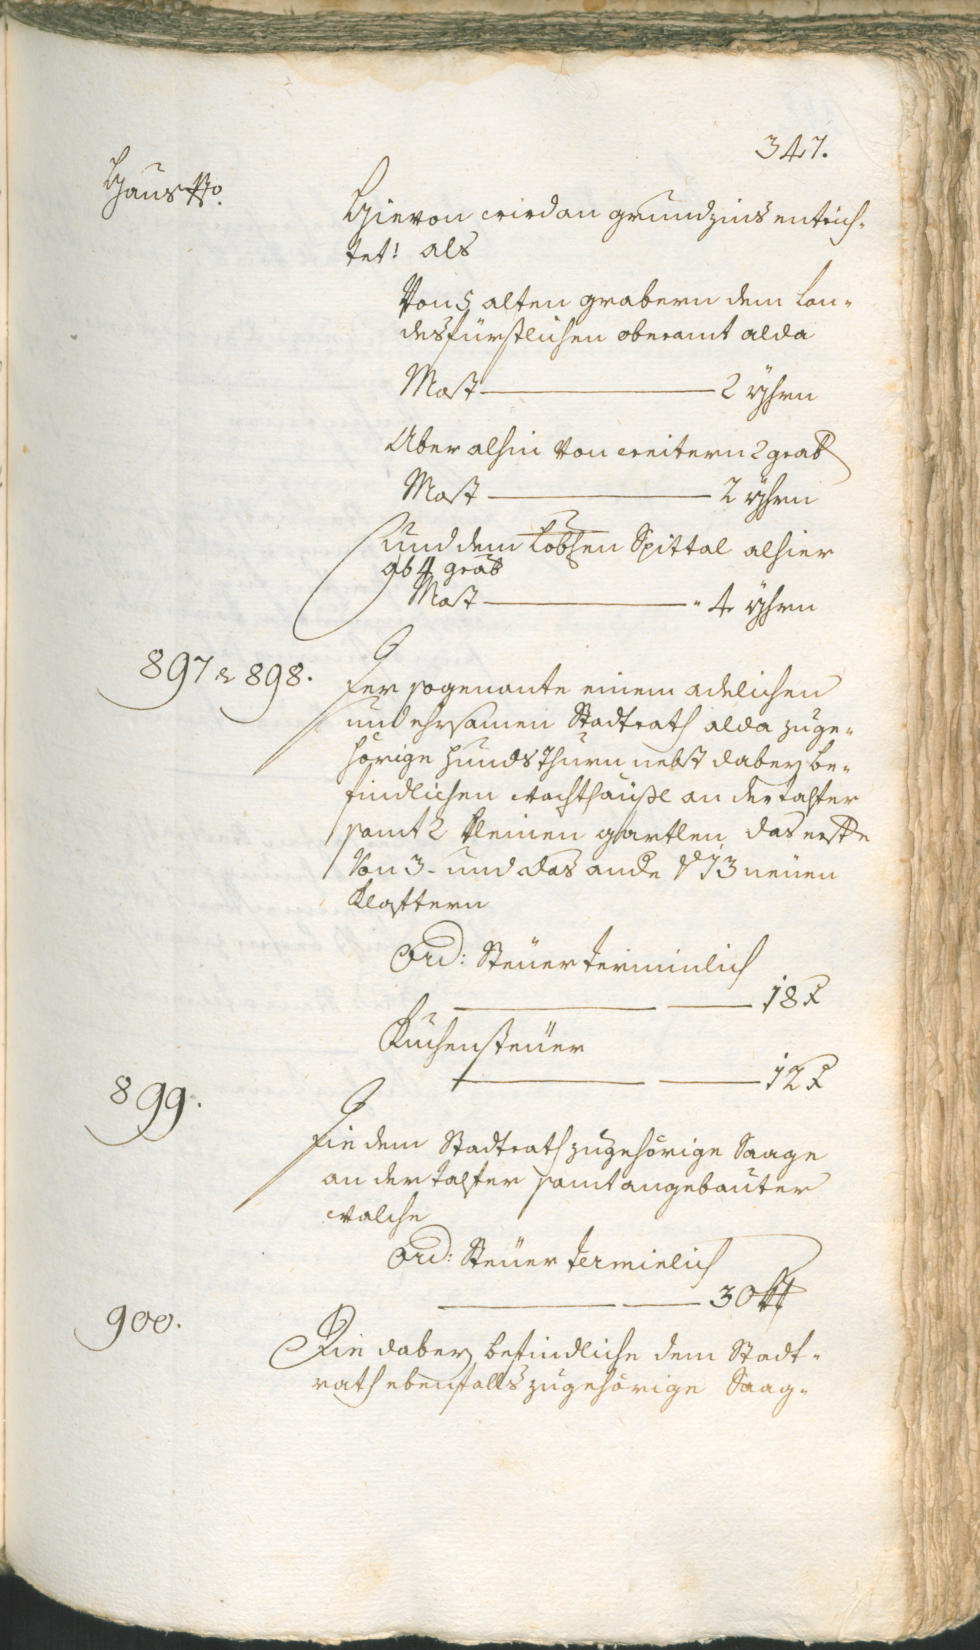 347.
Haus No.
Hievon wird an grundzins entrich-
tet: als
Von 5 alten grabern dem lan-
desfürstlichen oberamt alda
Most 2 Yhrn
Aber alhin von weitern 2 grab
Most 2 Yhrn
und dem Lobl.en Spittal alhier
ab 4 grab
Most 4 Yhrn
897 & 898.
Der sogenante einem adelichen
und ehrsamen Stadtrath alda zuge-
hörige hundsthurn nebst dabey be-
findlichen wachthäusl an der talfer
samt 2 kleinen gartlen, das erste
von 3- und das ande 73 neuen
Klaftern
Ord: Steuer Terminlich
18 x
Kuchensteuer
12 x
899.
Die dem Stadtrath zugehörige Saage
an der talfer samt angebauter
walche
Ord: Steuer Terminlich
30
900.
Die dabey befindliche dem Stadt-
rath ebenfalls zugehörige Saag-